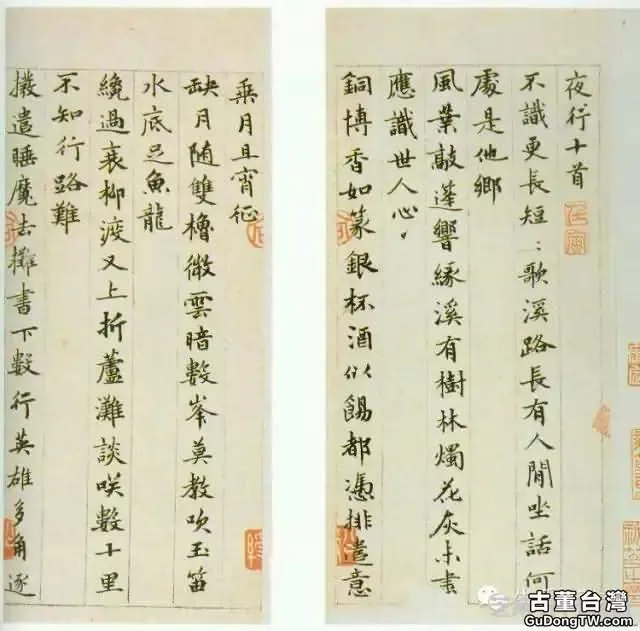 夜行十首
不識更長短〻歌溪路長有人閒坐話何
處是他鄉
風葉敲蓬響緣溪有樹林燭花灰未盡
應識世人心
銅博香如篆銀杯酒似餳都憑排遣意
乘月且宵征
缺月随雙櫓微雲暗數峯莫教吹玉笛
水底足魚龍
纔過衰柳渡又上折蘆灘談咲數十里
不知行路難
撥遣睡魔去攤書下數行英雄多角逐
古董台灣
GuDongTW.com